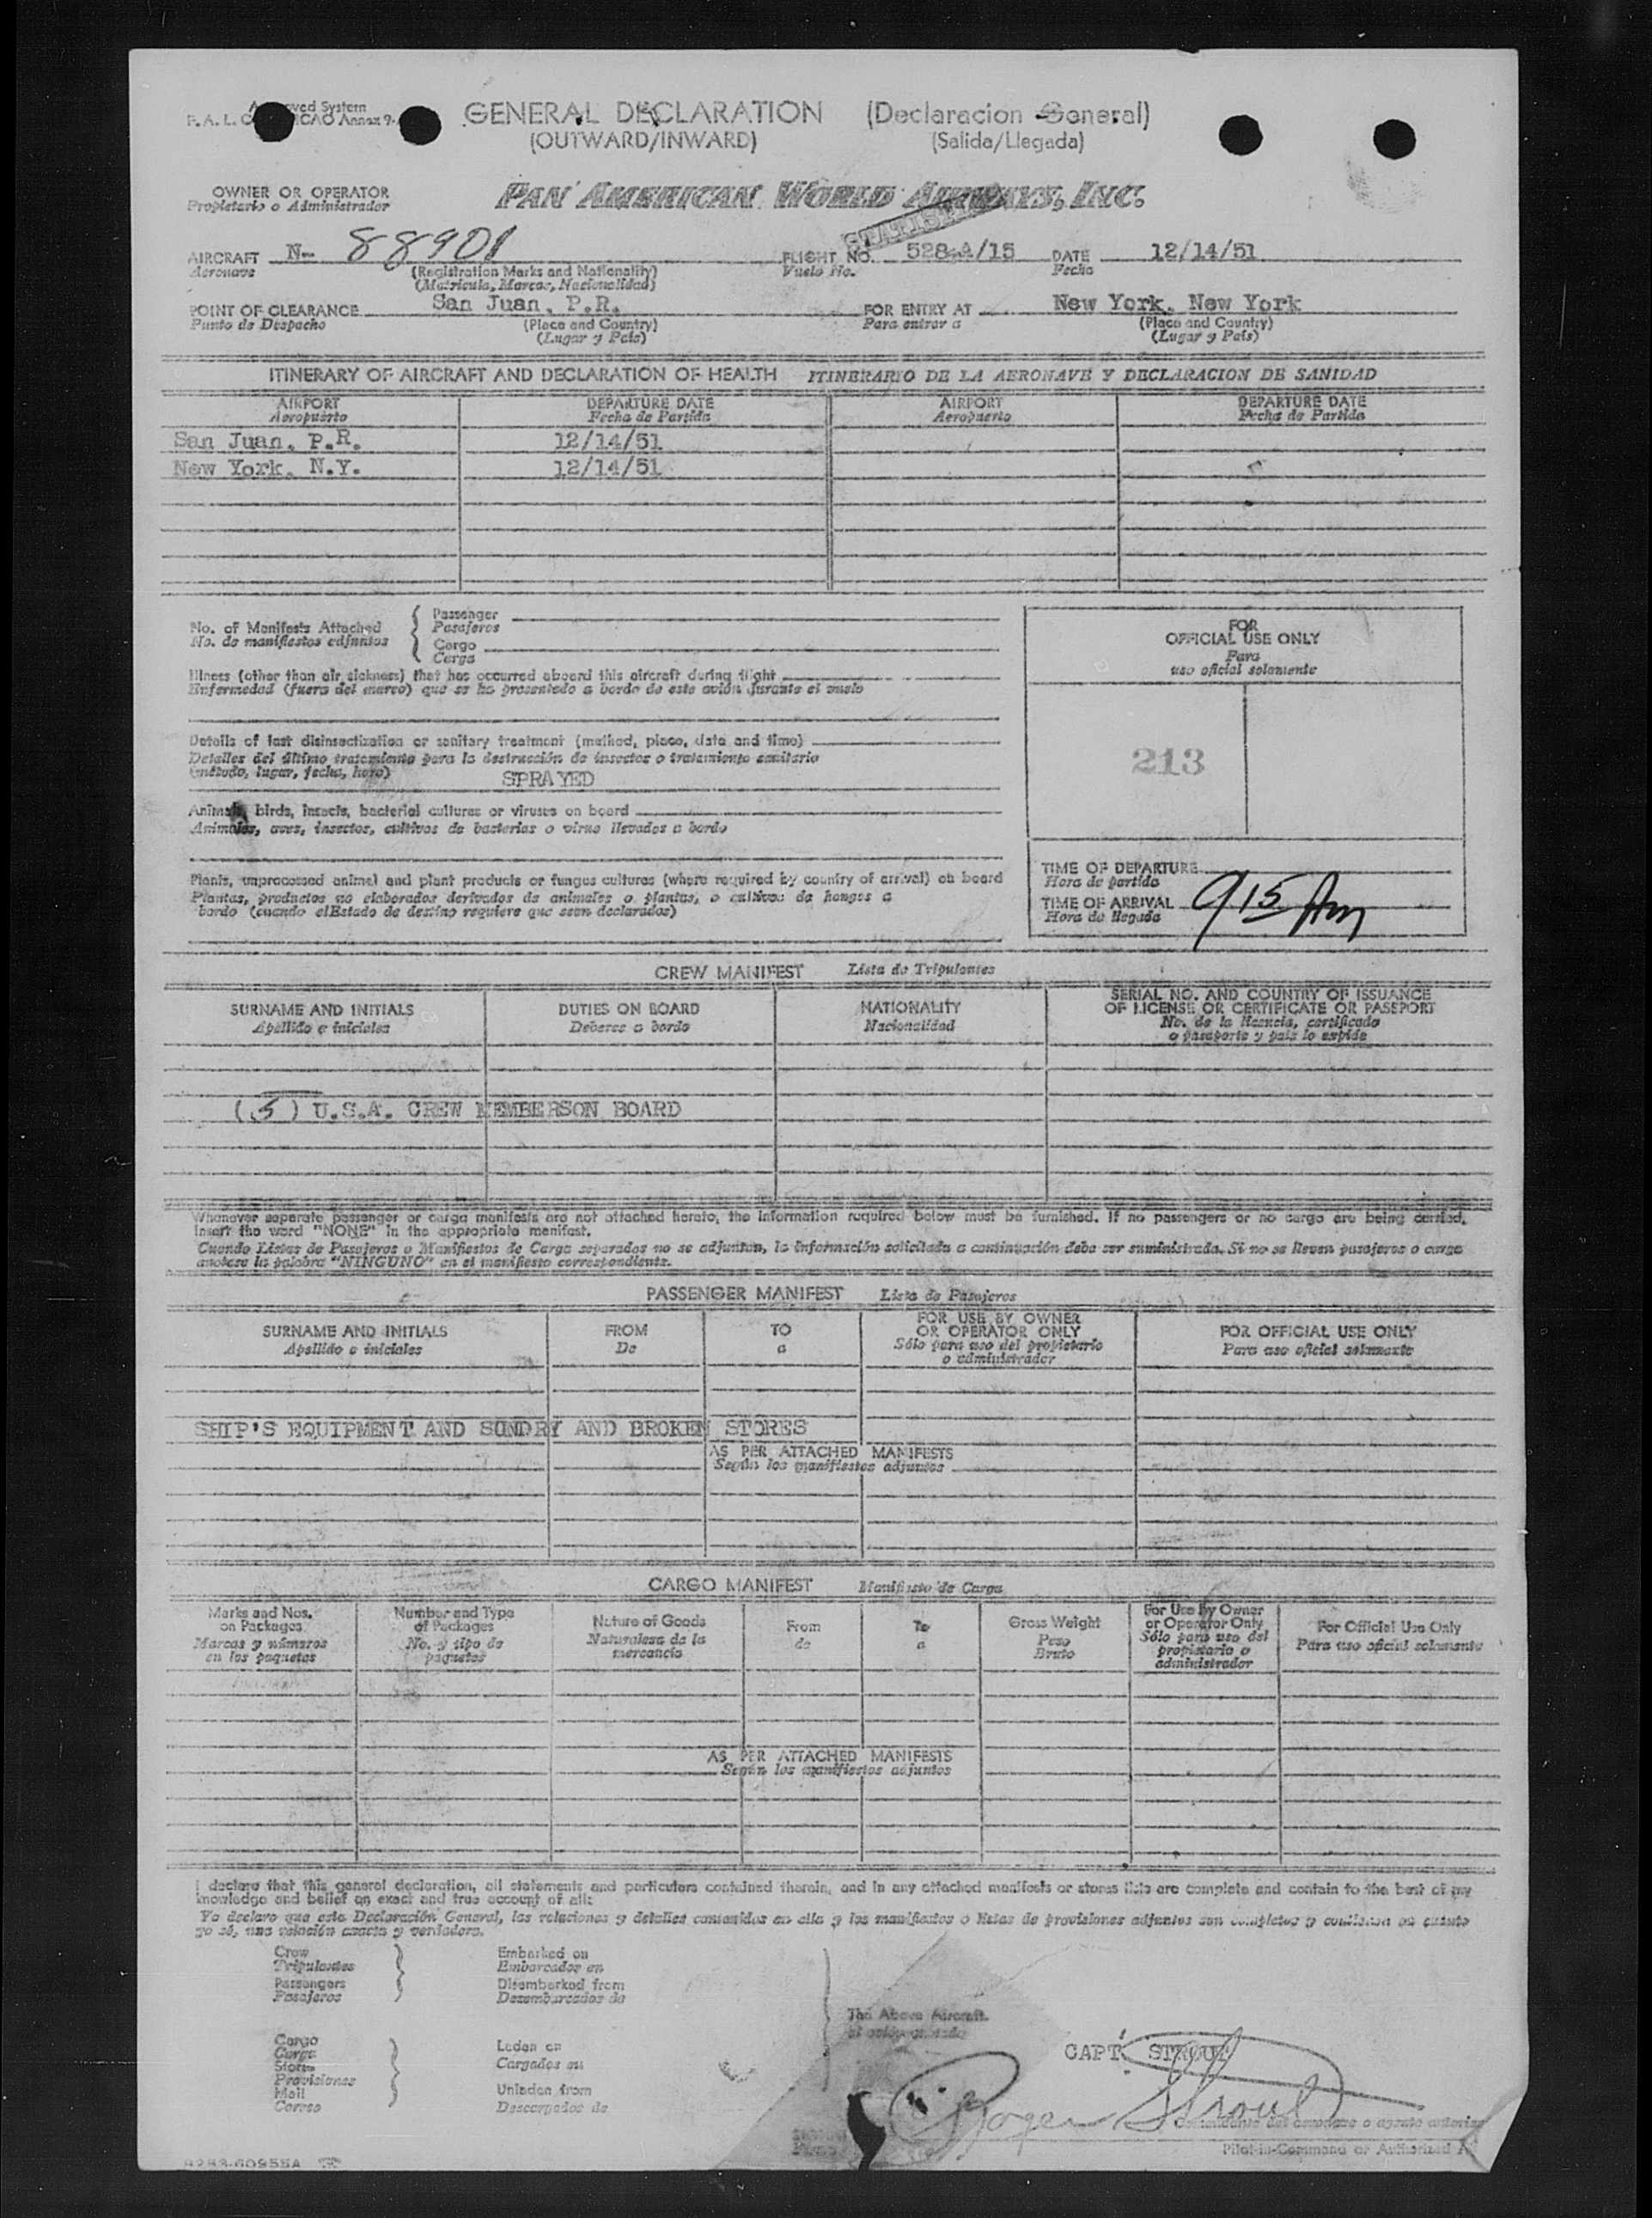 GENERAL DECLARATION (Declaracion General)
(OUTWARD/INWARD) (Salida/Llegada)
OWNER OR OPERATOR
Propietario o Administrador
PAN AMERICAN WORLD AIRWAYS, INC.
AIRCRAFT N- 88901 FLIGHT NO. 528-A/15 DATE 12/14/51
Aeronave (Registration Marks and Nationality) Vuelo No. Fecha
(Matricula, Marcas, Nacionalidad)
POINT OF CLEARANCE San Juan, P.R. FOR ENTRY AT New York, New York
Punto de Despacho (Place and Country) Para entrar a (Place and Country)
(Lugar y País) (Lugar y País)
ITINERARY OF AIRCRAFT AND DECLARATION OF HEALTH ITINERARIO DE LA AERONAVE Y DECLARACION DE SANIDAD
AIRPORT DEPARTURE DATE AIRPORT DEPARTURE DATE
Aeropuerto Fecha de Partida Aeropuerto Fecha de Partida
San Juan, P.R. 12/14/51
New York, N.Y. 12/14/51
No. of Manifests Attached
No. de manifiestos adjuntos
Passenger
Pasajeros
Cargo
Carga
Illness (other than air sickness) that has occurred aboard this aircraft during flight
Enfermedad (fuera del mareo) que se ha presentado a bordo de este avión durante el vuelo
Details of last disinsectization or sanitary treatment (method, place, date and time)
Detalles del último tratamiento para la destrucción de insectos o tratamiento sanitario
(método, lugar, fecha, hora) SPRAYED
Animals, birds, insects, bacterial cultures or viruses on board
Animales, aves, insectos, cultivos de bacterias o virus llevados a bordo
Plants, unprocessed animal and plant products or fungus cultures (where required by country of arrival) on board
Plantas, productos no elaborados derivados de animales o plantas, o cultivos de hongos a
bordo (cuando el Estado de destino requiere que sean declarados)
FOR
OFFICIAL USE ONLY
Para
uso oficial solamente
213
TIME OF DEPARTURE
Hora de partida
TIME OF ARRIVAL 915 Am
Hora de llegada
CREW MANIFEST Lista de Tripulantes
SURNAME AND INITIALS DUTIES ON BOARD NATIONALITY SERIAL NO. AND COUNTRY OF ISSUANCE
OF LICENSE OR CERTIFICATE OR PASSPORT
Apellido e iniciales Deberes a bordo Nacionalidad No. de la licencia, certificado
o pasaporte y país lo expide
(5) U.S.A. CREW MEMBERSON BOARD
Whenever separate passenger or cargo manifests are not attached hereto, the information required below must be furnished. If no passengers or no cargo are being carried,
insert the word "NONE" in the appropriate manifest.
Cuando Listas de Pasajeros o Manifiestos de Carga separados no se adjunten, la información solicitada a continuación debe ser suministrada. Si no se lleven pasajeros o carga
anotese la palabra "NINGUNO" en el manifiesto correspondiente.
PASSENGER MANIFEST Lista de Pasajeros
SURNAME AND INITIALS FROM TO FOR USE BY OWNER
OR OPERATOR ONLY FOR OFFICIAL USE ONLY
Apellido e iniciales De a Sólo para uso del propietario
o administrador Para uso oficial solamente
SHIP'S EQUIPMENT AND SUNDRY AND BROKEN STORES
AS PER ATTACHED MANIFESTS
Según los manifiestos adjuntos
CARGO MANIFEST Manifiesto de Carga
Marks and Nos.
on Packages
Marcas y números
en los paquetes
Number and Type
of Packages
No. y tipo de
paquetes
Nature of Goods
Naturaleza de la
mercancía
From
de
To
a
Gross Weight
Peso
Bruto
For Use By Owner
or Operator Only
Sólo para uso del
propietario o
administrador
For Official Use Only
Para uso oficial solamente
AS PER ATTACHED MANIFESTS
Según los manifiestos adjuntos
I declare that this general declaration, all statements and particulars contained therein, and in any attached manifests or stores lists are complete and contain to the best of my
knowledge and belief an exact and true account of all:
Yo declaro que esta Declaración General, las relaciones y detalles contenidos en ella y los manifiestos o listas de provisiones adjuntos son completos y contienen en cuanto
yo sé, una relación exacta y verdadera.
Crew
Tripulantes
Passengers
Pasajeros
Embarked on
Embarcados en
Disembarked from
Desembarcados de
Cargo
Carga
Stores
Provisiones
Mail
Correo
Laden on
Cargados en
Unladen from
Descargados de
The Above Aircraft.
CAPT. STROUT
Roger Strout
Comandante del aeronave o agente
Pilot-in-Command or Authorized